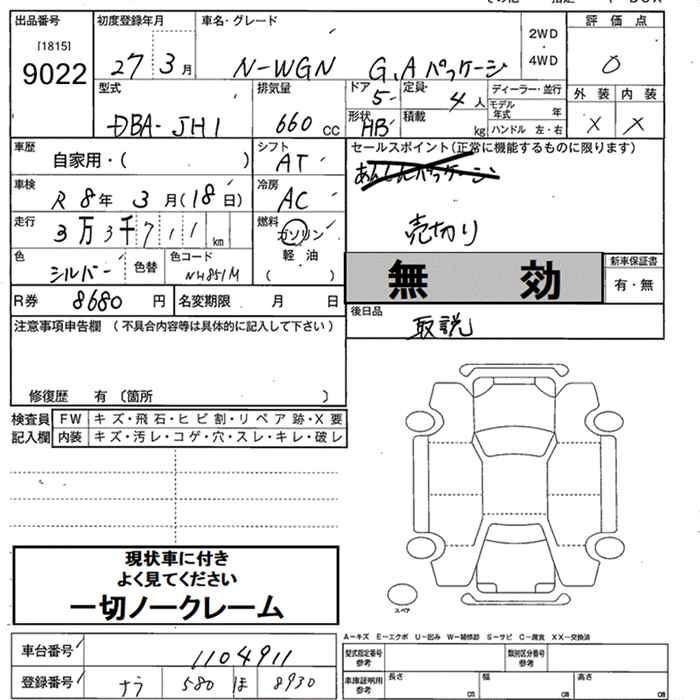 出品番号 初度登録年月 車名・グレード 評価点
[1815] 2WD
9022 27 3月 N-WGN G,Aパッケージ ・ 4WD 0
型式 排気量 ドア 定員 ディーラー・並行 外装 内装
5 4人 モデル年式 年
DBA-JH1 660cc 形状 HB 積載 kg ハンドル 左・右 X X
車歴 自家用・( ) シフト AT セールスポイント(正常に機能するものに限ります)
車検 R8年3月(18日) 冷房 AC あんしんパッケージ
走行 3万3千711km 燃料 ガソリン 売切り
軽油
色 シルバー 色替 色コード NH851M ( ) 無効 新車保証書
有・無
R券 8680円 名変期限 月 日 後日品
注意事項申告欄 (不具合内容等は具体的に記入して下さい) 取説
修復歴 有 (箇所 )
検査員 FW キズ・飛石・ヒビ割・リペア跡・X要
記入欄 内装 キズ・汚レ・コゲ・穴・スレ・キレ・破レ
現状車に付き
よく見てください
一切ノークレーム
スペア
A-キズ E-エクボ U-凹み W-補修跡 S-サビ C-腐食 XX-交換済
車台番号 1104911 型式指定番号 参考 類別区分番号 参考
登録番号 ナラ 580 ほ 8930 車庫証明用 参考 長さ cm 幅 cm 高さ cm